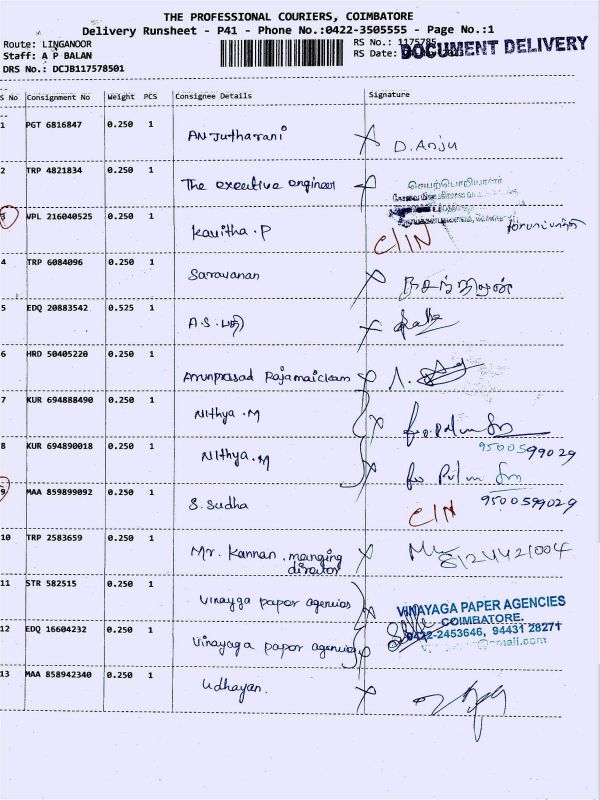 THE PROFESSIONAL COURIERS, COIMBATORE
Delivery Runsheet - P41 - Phone No.:0422-3505555 - Page No.:1
Route: LINGANOOR
Staff: A P BALAN
DRS No.: DCJB117578501
RS No.: 1175785
RS Date:
DOCUMENT DELIVERY
S No Consignment No Weight PCS Consignee Details Signature
1 PGT 6816847 0.250 1 AN-Jutharani D. Anju
2 TRP 4821834 0.250 1 The executive engineer செயற்பொறியாளர்
3 VPL 216040525 0.250 1 Kavitha . P C/N
4 TRP 6084096 0.250 1 Saravanan
5 EDQ 20883542 0.525 1 A.S. பதி
6 HRD 50405220 0.250 1 Arrunprasad Rajamaickam
7 KUR 694888490 0.250 1 Nithya . M
9500599029
8 KUR 694890018 0.250 1 Nithya . M
9500599029
9 MAA 859899092 0.250 1 S. Sudha C/N
10 TRP 2583659 0.250 1 Mr. Kannan. manging 8124421004
director
11 STR 582515 0.250 1 Vinayga papor agencies
VINAYAGA PAPER AGENCIES
COIMBATORE.
12 EDQ 16604232 0.250 1 Vinayaga papor agencies
0422-2453646, 94431 28271
13 MAA 858942340 0.250 1 Udhayan.